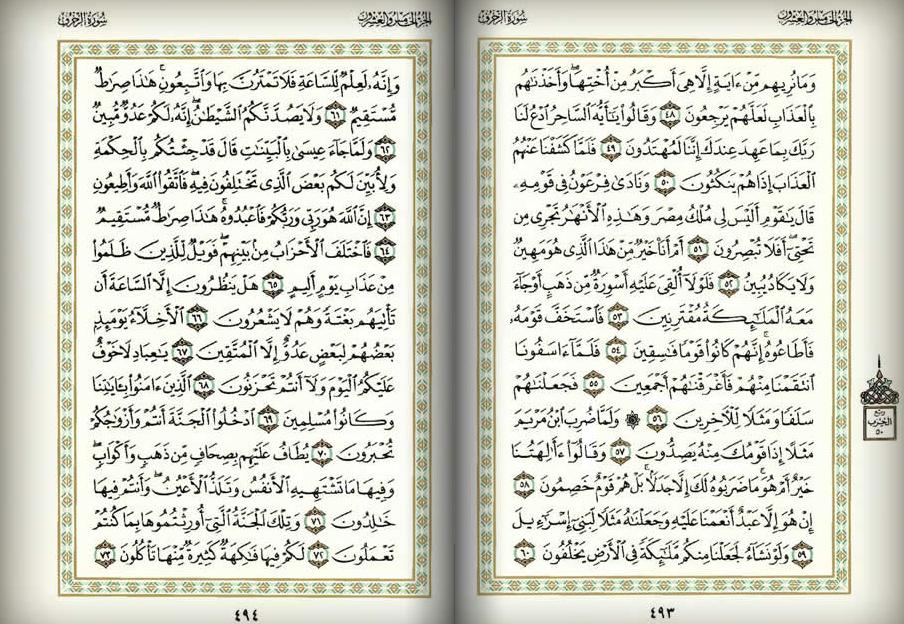 الجزء الخامس والعشرون
سورة الزخرف
وَمَا نُرِيهِم مِّنْ ءَايَةٍ إِلَّا هِىَ أَكْبَرُ مِنْ أُخْتِهَا ۖ وَأَخَذْنَٰهُم
بِٱلْعَذَابِ لَعَلَّهُمْ يَرْجِعُونَ ٤٨ وَقَالُوا۟ يَٰٓأَيُّهَ ٱلسَّاحِرُ ٱدْعُ لَنَا
رَبَّكَ بِمَا عَهِدَ عِندَكَ إِنَّنَا لَمُهْتَدُونَ ٤٩ فَلَمَّا كَشَفْنَا عَنْهُمُ
ٱلْعَذَابَ إِذَا هُمْ يَنكُثُونَ ٥٠ وَنَادَىٰ فِرْعَوْنُ فِى قَوْمِهِۦ
قَالَ يَٰقَوْمِ أَلَيْسَ لِى مُلْكُ مِصْرَ وَهَٰذِهِ ٱلْأَنْهَٰرُ تَجْرِى مِن
تَحْتِىٓ ۖ أَفَلَا تُبْصِرُونَ ٥١ أَمْ أَنَا۠ خَيْرٌ مِّنْ هَٰذَا ٱلَّذِى هُوَ مَهِينٌ
وَلَا يَكَادُ يُبِينُ ٥٢ فَلَوْلَآ أُلْقِىَ عَلَيْهِ أَسْوِرَةٌ مِّن ذَهَبٍ أَوْ جَآءَ
مَعَهُ ٱلْمَلَٰٓئِكَةُ مُقْتَرِنِينَ ٥٣ فَٱسْتَخَفَّ قَوْمَهُۥ
فَأَطَاعُوهُ ۚ إِنَّهُمْ كَانُوا۟ قَوْمًا فَٰسِقِينَ ٥٤ فَلَمَّآ ءَاسَفُونَا
ٱنتَقَمْنَا مِنْهُمْ فَأَغْرَقْنَٰهُمْ أَجْمَعِينَ ٥٥ فَجَعَلْنَٰهُمْ
سَلَفًا وَمَثَلًا لِّلْءَاخِرِينَ ٥٦ ۞ وَلَمَّا ضُرِبَ ٱبْنُ مَرْيَمَ
مَثَلًا إِذَا قَوْمُكَ مِنْهُ يَصِدُّونَ ٥٧ وَقَالُوٓا۟ ءَأَٰلِهَتُنَا
خَيْرٌ أَمْ هُوَ ۚ مَا ضَرَبُوهُ لَكَ إِلَّا جَدَلًۢا ۚ بَلْ هُمْ قَوْمٌ خَصِمُونَ ٥٨
إِنْ هُوَ إِلَّا عَبْدٌ أَنْعَمْنَا عَلَيْهِ وَجَعَلْنَٰهُ مَثَلًا لِّبَنِىٓ إِسْرَٰٓءِيلَ
٥٩ وَلَوْ نَشَآءُ لَجَعَلْنَا مِنكُم مَّلَٰٓئِكَةً فِى ٱلْأَرْضِ يَخْلُفُونَ ٦٠
٤٩٣
ربع
الحزب
٥٠
الجزء الخامس والعشرون
سورة الزخرف
وَإِنَّهُۥ لَعِلْمٌ لِّلسَّاعَةِ فَلَا تَمْتَرُنَّ بِهَا وَٱتَّبِعُونِ ۚ هَٰذَا صِرَٰطٌ
مُّسْتَقِيمٌ ٦١ وَلَا يَصُدَّنَّكُمُ ٱلشَّيْطَٰنُ ۖ إِنَّهُۥ لَكُمْ عَدُوٌّ مُّبِينٌ
٦٢ وَلَمَّا جَآءَ عِيسَىٰ بِٱلْبَيِّنَٰتِ قَالَ قَدْ جِئْتُكُم بِٱلْحِكْمَةِ
وَلِأُبَيِّنَ لَكُم بَعْضَ ٱلَّذِى تَخْتَلِفُونَ فِيهِ ۖ فَٱتَّقُوا۟ ٱللَّهَ وَأَطِيعُونِ
٦٣ إِنَّ ٱللَّهَ هُوَ رَبِّى وَرَبُّكُمْ فَٱعْبُدُوهُ ۚ هَٰذَا صِرَٰطٌ مُّسْتَقِيمٌ
٦٤ فَٱخْتَلَفَ ٱلْأَحْزَابُ مِنۢ بَيْنِهِمْ ۖ فَوَيْلٌ لِّلَّذِينَ ظَلَمُوا۟
مِنْ عَذَابِ يَوْمٍ أَلِيمٍ ٦٥ هَلْ يَنظُرُونَ إِلَّا ٱلسَّاعَةَ أَن
تَأْتِيَهُم بَغْتَةً وَهُمْ لَا يَشْعُرُونَ ٦٦ ٱلْأَخِلَّآءُ يَوْمَئِذٍۭ
بَعْضُهُمْ لِبَعْضٍ عَدُوٌّ إِلَّا ٱلْمُتَّقِينَ ٦٧ يَٰعِبَادِ لَا خَوْفٌ
عَلَيْكُمُ ٱلْيَوْمَ وَلَآ أَنتُمْ تَحْزَنُونَ ٦٨ ٱلَّذِينَ ءَامَنُوا۟ بِـَٔايَٰتِنَا
وَكَانُوا۟ مُسْلِمِينَ ٦٩ ٱدْخُلُوا۟ ٱلْجَنَّةَ أَنتُمْ وَأَزْوَٰجُكُمْ
تُحْبَرُونَ ٧٠ يُطَافُ عَلَيْهِم بِصِحَافٍ مِّن ذَهَبٍ وَأَكْوَابٍ ۖ
وَفِيهَا مَا تَشْتَهِيهِ ٱلْأَنفُسُ وَتَلَذُّ ٱلْأَعْيُنُ ۖ وَأَنتُمْ فِيهَا
خَٰلِدُونَ ٧١ وَتِلْكَ ٱلْجَنَّةُ ٱلَّتِىٓ أُورِثْتُمُوهَا بِمَا كُنتُمْ
تَعْمَلُونَ ٧٢ لَكُمْ فِيهَا فَٰكِهَةٌ كَثِيرَةٌ مِّنْهَا تَأْكُلُونَ ٧٣
٤٩٤